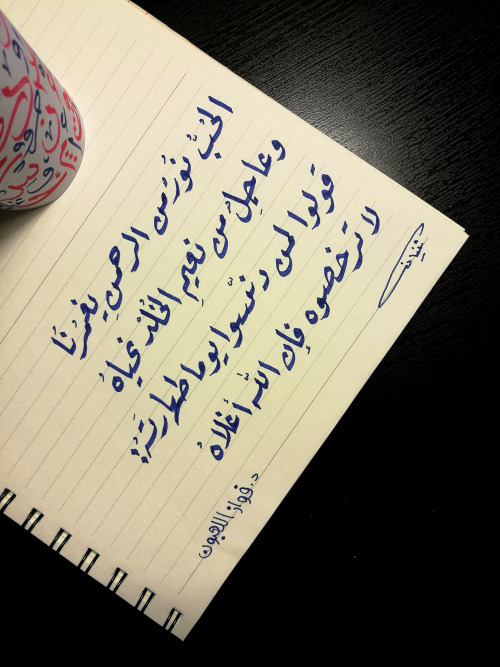 الحُبُّ نُورٌ من الرحمنِ يغمُرُنَا
وعاجِلٌ من نعيمِ الخُلدِ نحياهُ
قولوا لمن دنّسوا يوما طهارتَهُ:
لا ترخصوه فإن الله أغلاهُ
د. فواز اللعبون